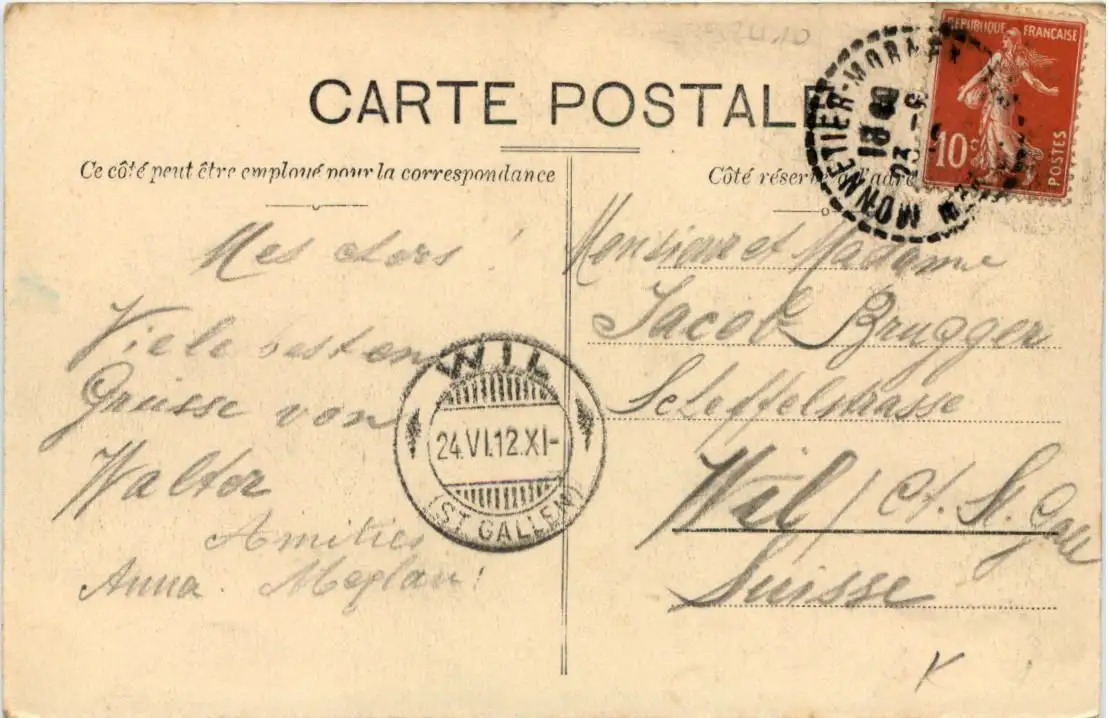 CARTE POSTALE
Ce côté peut être employé pour la correspondance
Côté réservé à l'adresse
RÉPUBLIQUE FRANÇAISE
10c
POSTES
MONNETIER-MORNEX
23 -6
Mes chers !
Viele besten
Grüsse von
Walter
Amitiés
Anna. Meylan!
WIL
24.VI.12.XI-
(ST. GALLEN)
Monsieur et Madame
Jacob Brugger
Scheffelstrasse
Wil / Ct. St. Gall
Suisse